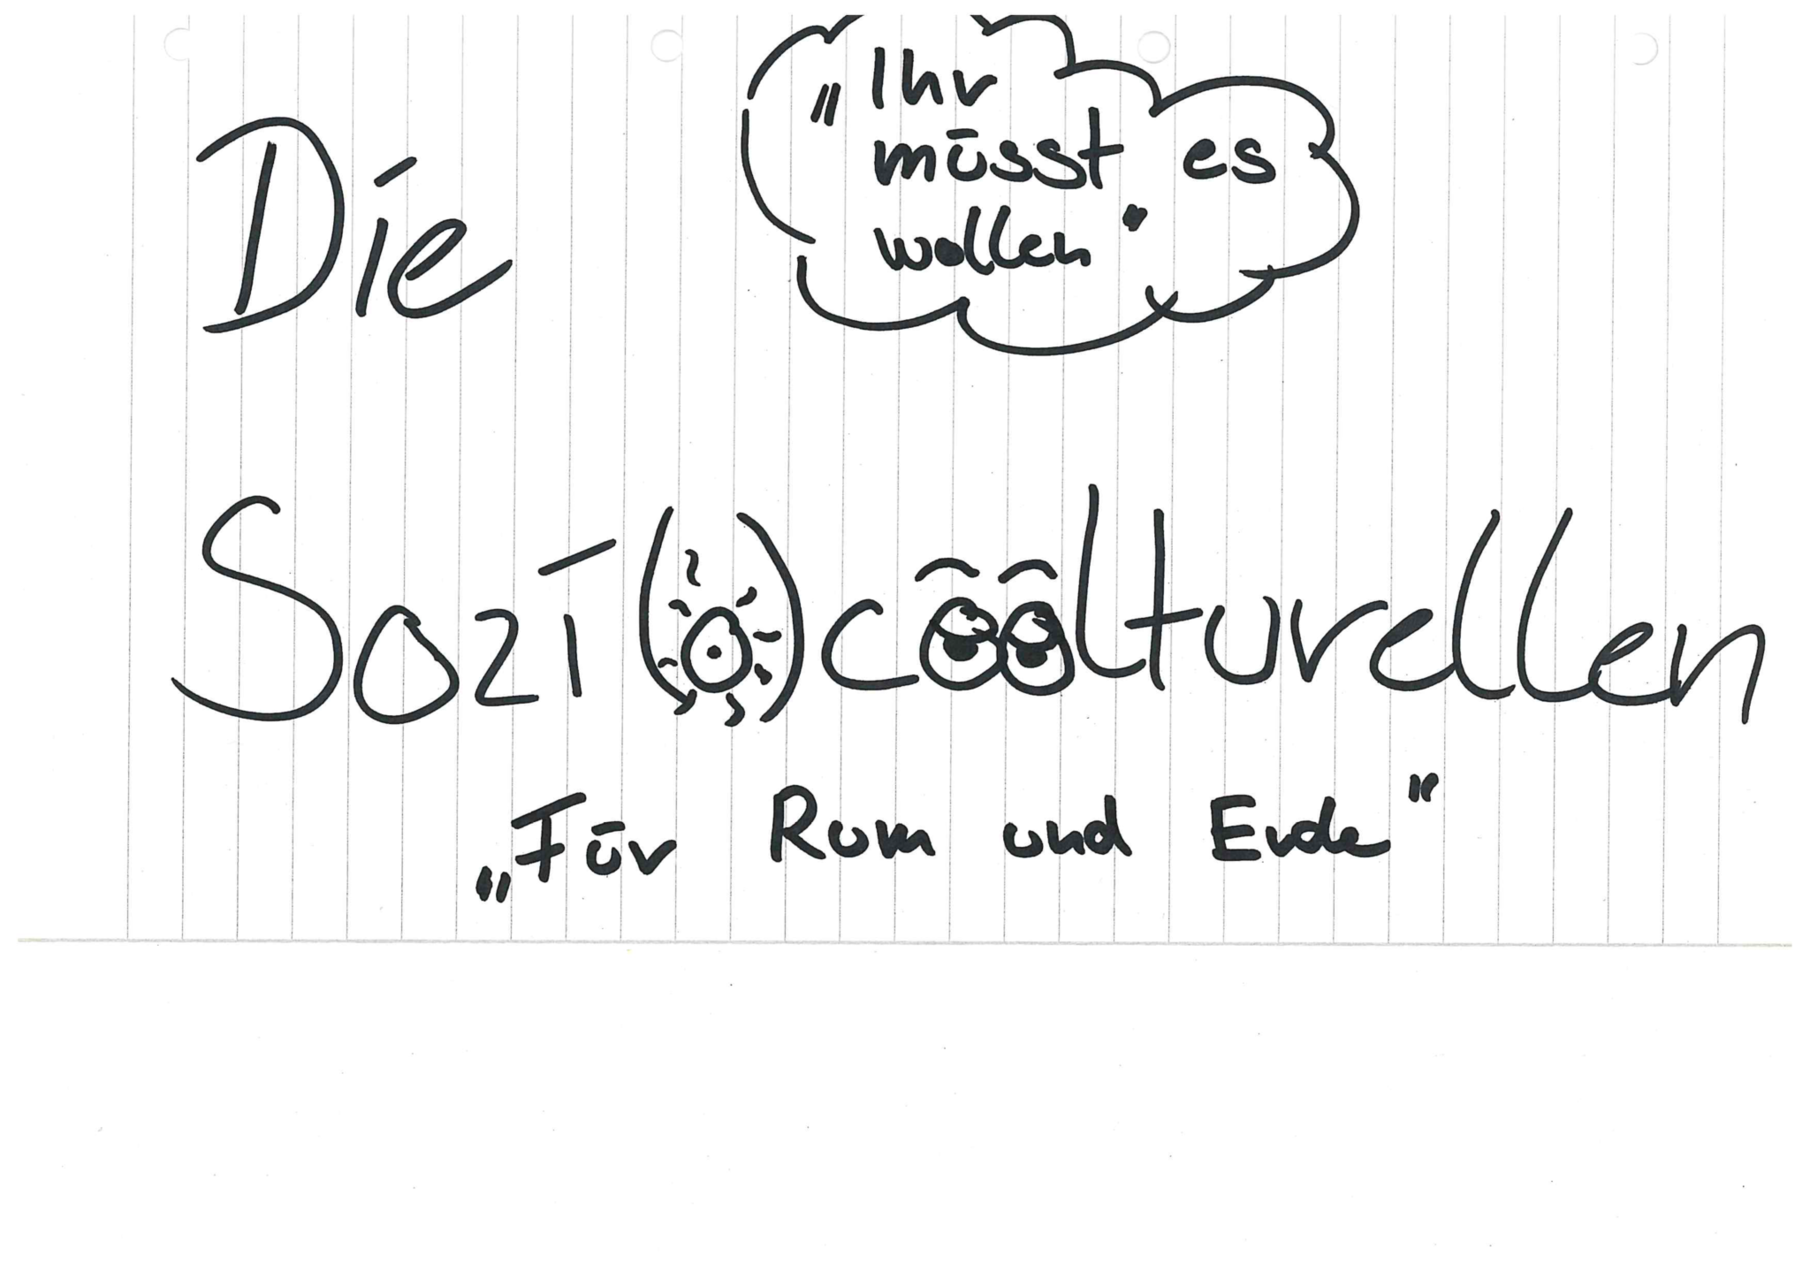 Die
„Ihr
müsst es
wollen"
Sozi(o)coolturellen
„Für Rum und Erde"